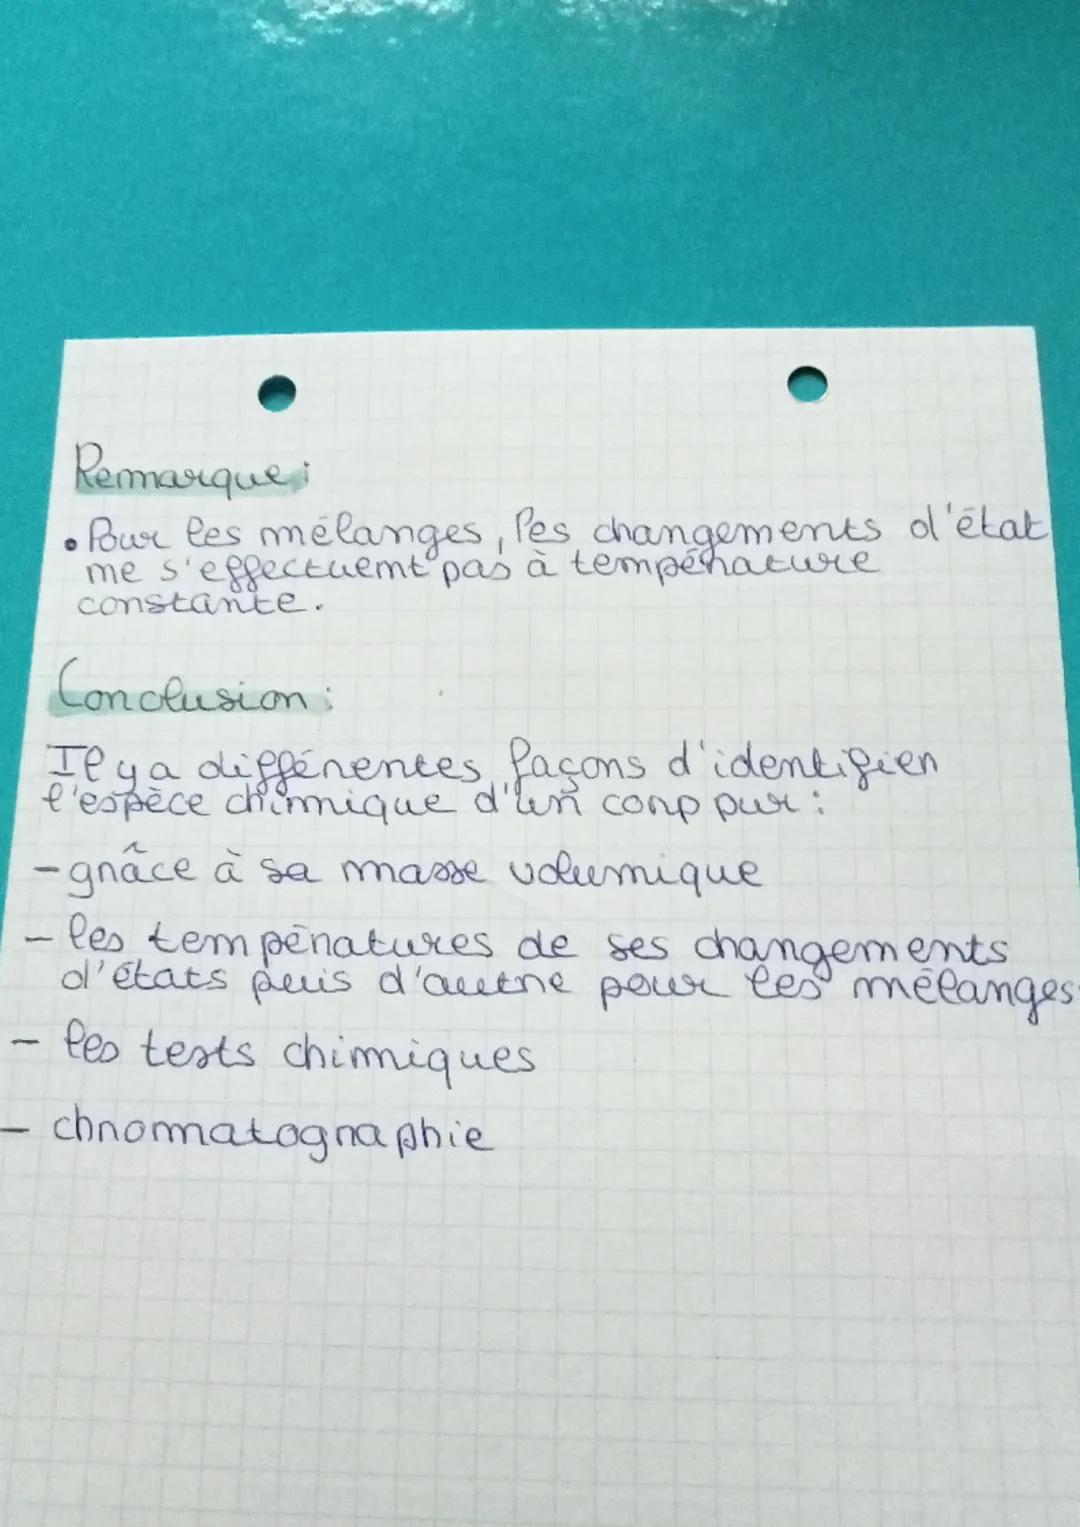 Remarque :
• Pour les mélanges, les changements d'état
ne s'effectuent pas à température
constante.
Conclusion :
Il y a différentes façons d'identifier
l'espèce chimique d'un corp pur :
- grâce à sa masse volumique
- les températures de ses changements
d'états puis d'autre pour les mélanges
- les tests chimiques
- chromatographie